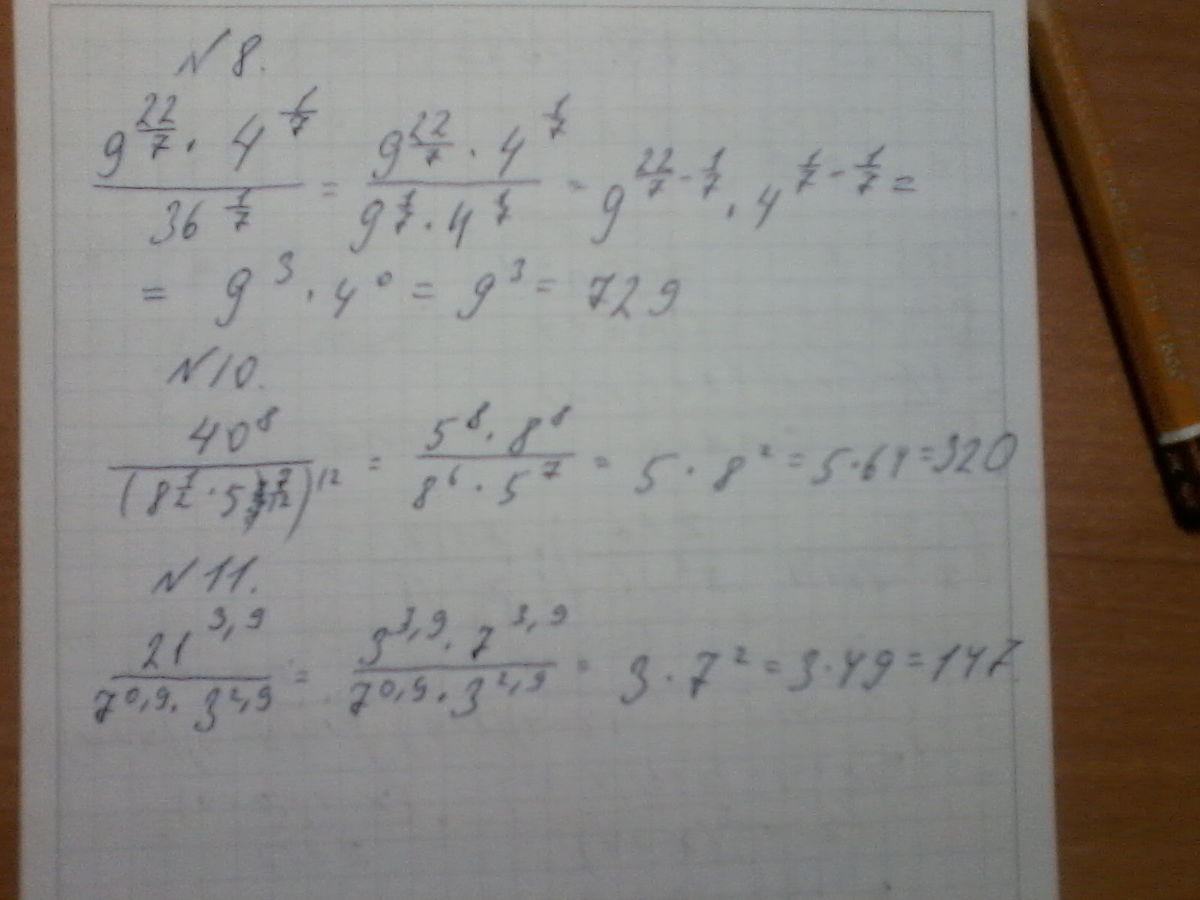 N 8.
9^{22/7} · 4^{1/7} / 36^{1/7} = 9^{22/7} · 4^{1/7} / 9^{1/7} · 4^{1/7} = 9^{22/7 - 1/7} · 4^{1/7 - 1/7} =
= 9^3 · 4^0 = 9^3 = 729
N 10.
40^8 / (8^{1/2} · 5^{7/12})^{12} = 5^8 · 8^8 / 8^6 · 5^7 = 5 · 8^2 = 5·64=320
N 11.
21^{3,9} / 7^{0,9} · 3^{2,9} = 3^{3,9} · 7^{3,9} / 7^{0,9} · 3^{2,9} = 3 · 7^2 = 3·49=147